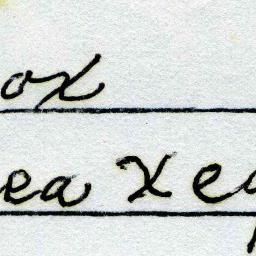 ox
ea x e